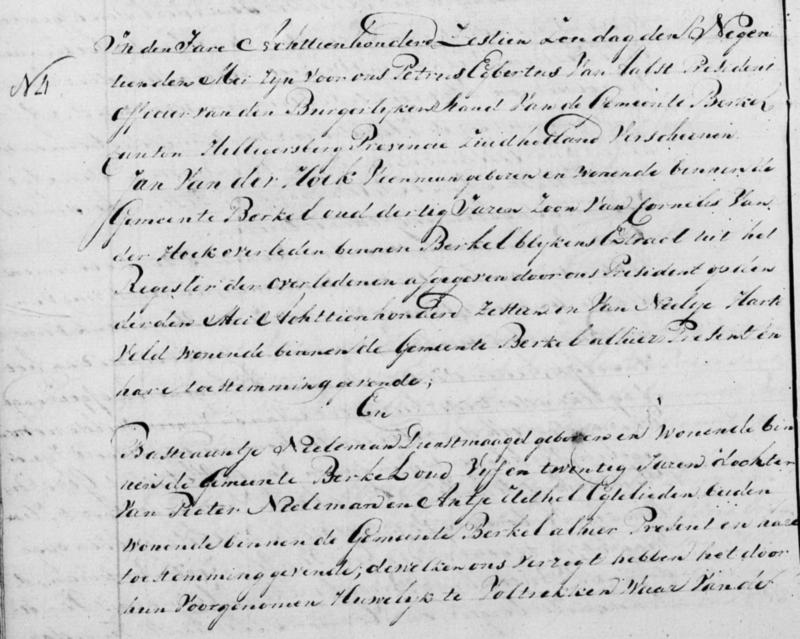 In den Jare Achttienhonderd Zestien Zondag den Negen
N4 tienden Mei Zijn voor ons Petrus Egbertus Van Aalst President
officier van den Burgerlijken Stand Van de Gemeente Berkel
Kanton Hillegersberg Provincie Zuidholland Verscheenen
Jan Van der Hoek Veenman geboren en Wonende binnen de
Gemeente Berkel oud dertig Jaren Zoon Van Cornelis Van
der Hoek overleden binnen Berkel blijkens Extract uit het
Register der overledenen afgegeven door ons President op den
derden Mei Achttienhonderd Zestien en Van Neeltje Hark
Veld wonende binnen de Gemeente Berkel alhier Present en
hare toestemming gevende;
En
Bastiaantje Niedeman Dienstmaagd geboren en Wonende bin
nen de Gemeente Berkel oud Vijf en twintig Jaren dochter
Van Pieter Niedeman en Antje Egtelieden beiden
Wonende binnen de Gemeente Berkel alhier Present en hare
toestemming gevende; dewelken ons Verzegt hebben het door
hun Voorgenomen Huwelijk te Voltrekken Waar Van de